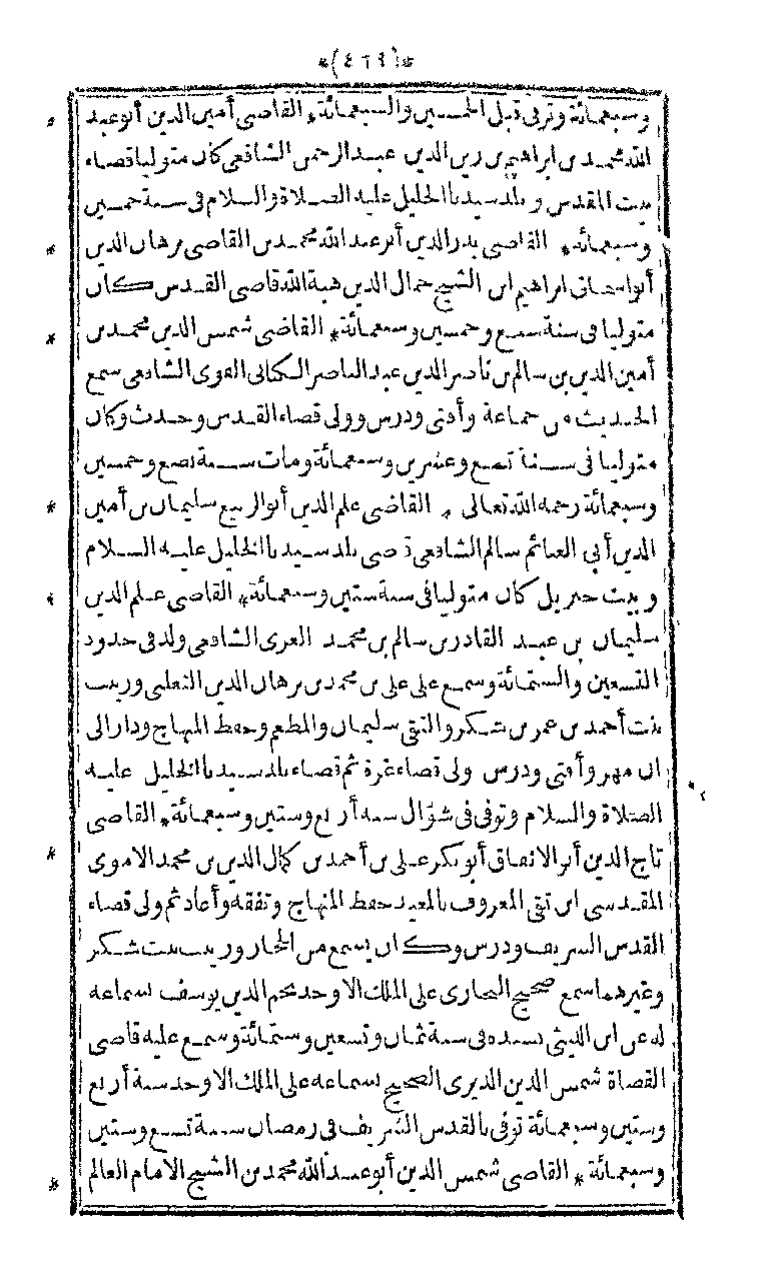 *(٤٦٩)*
وسبعمائة وتوفى قبل الخمسين والسبعمائة * القاضى أمين الدين أبو عبد
الله محمد بن ابراهيم بن زين الدين عبد الرحمن الشافعى كان متوليا قضاء
بيت المقدس وبلد سيدنا الخليل عليه الصلاة والسلام فى سنة خمسين
وسبعمائة * القاضى بدر الدين أبو عبد الله محمد بن القاضى برهان الدين
أبو اسحاق ابراهيم ابن الشيخ جمال الدين هبة الله قاضى القدس كان
متوليا فى سنة سبع وخمسين وسبعمائة * القاضى شمس الدين محمد بن
أمين الدين بن سالم بن ناصر الدين عبد الناصر الكنانى الغزى الشافعى سمع
الحديث من جماعة وأفتى ودرس وولى قضاء القدس وحدث وكان
متوليا فى سنة تسع وعشرين وسبعمائة ومات سنة بضع وخمسين
وسبعمائة رحمه الله تعالى * القاضى علم الدين أبو الربيع سليمان بن أمين
الدين أبى الغنائم سالم الشافعى قاضى بلد سيدنا الخليل عليه السلام
وبيت جبريل كان متوليا فى سنة ستين وسبعمائة * القاضى علم الدين
سليمان بن عبد القادر بن سالم بن محمد الغزى الشافعى ولد فى حدود
التسعين والستمائة وسمع على على بن محمد بن برهان الدين الثعلبى وزينب
بنت أحمد بن عمر بن شكر والتقى سليمان والمطعم وحفظ المنهاج ودار الى
ان مهر وأفتى ودرس ولى قضاء غزة ثم قضاء بلد سيدنا الخليل عليه
الصلاة والسلام وتوفى فى شوّال سنه أربع وستين وسبعمائة * القاضى
تاج الدين أبو الانفاق أبو بكر على بن أحمد بن كمال الدين بن محمد الاموى
المقدسى ابن تقى المعروف بالمعيد حفظ المنهاج وتفقه وأعاد ثم ولى قضاء
القدس الشريف ودرس وكان يسمع من الحجار وزينب بنت شكر
وغيرهما سمع صحيح البخارى على الملك الاوحد نجم الدين يوسف بسماعه
له عن ابن الليثى بسنده فى سنة ثمان وتسعين وستمائة وسمع عليه قاضى
القضاة شمس الدين الديرى الصحيح بسماعه على الملك الاوحد سنة أربع
وستين وسبعمائة توفى بالقدس الشريف فى رمضان سنة تسع وستين
وسبعمائة * القاضى شمس الدين أبو عبد الله محمد بن الشيخ الامام العالم